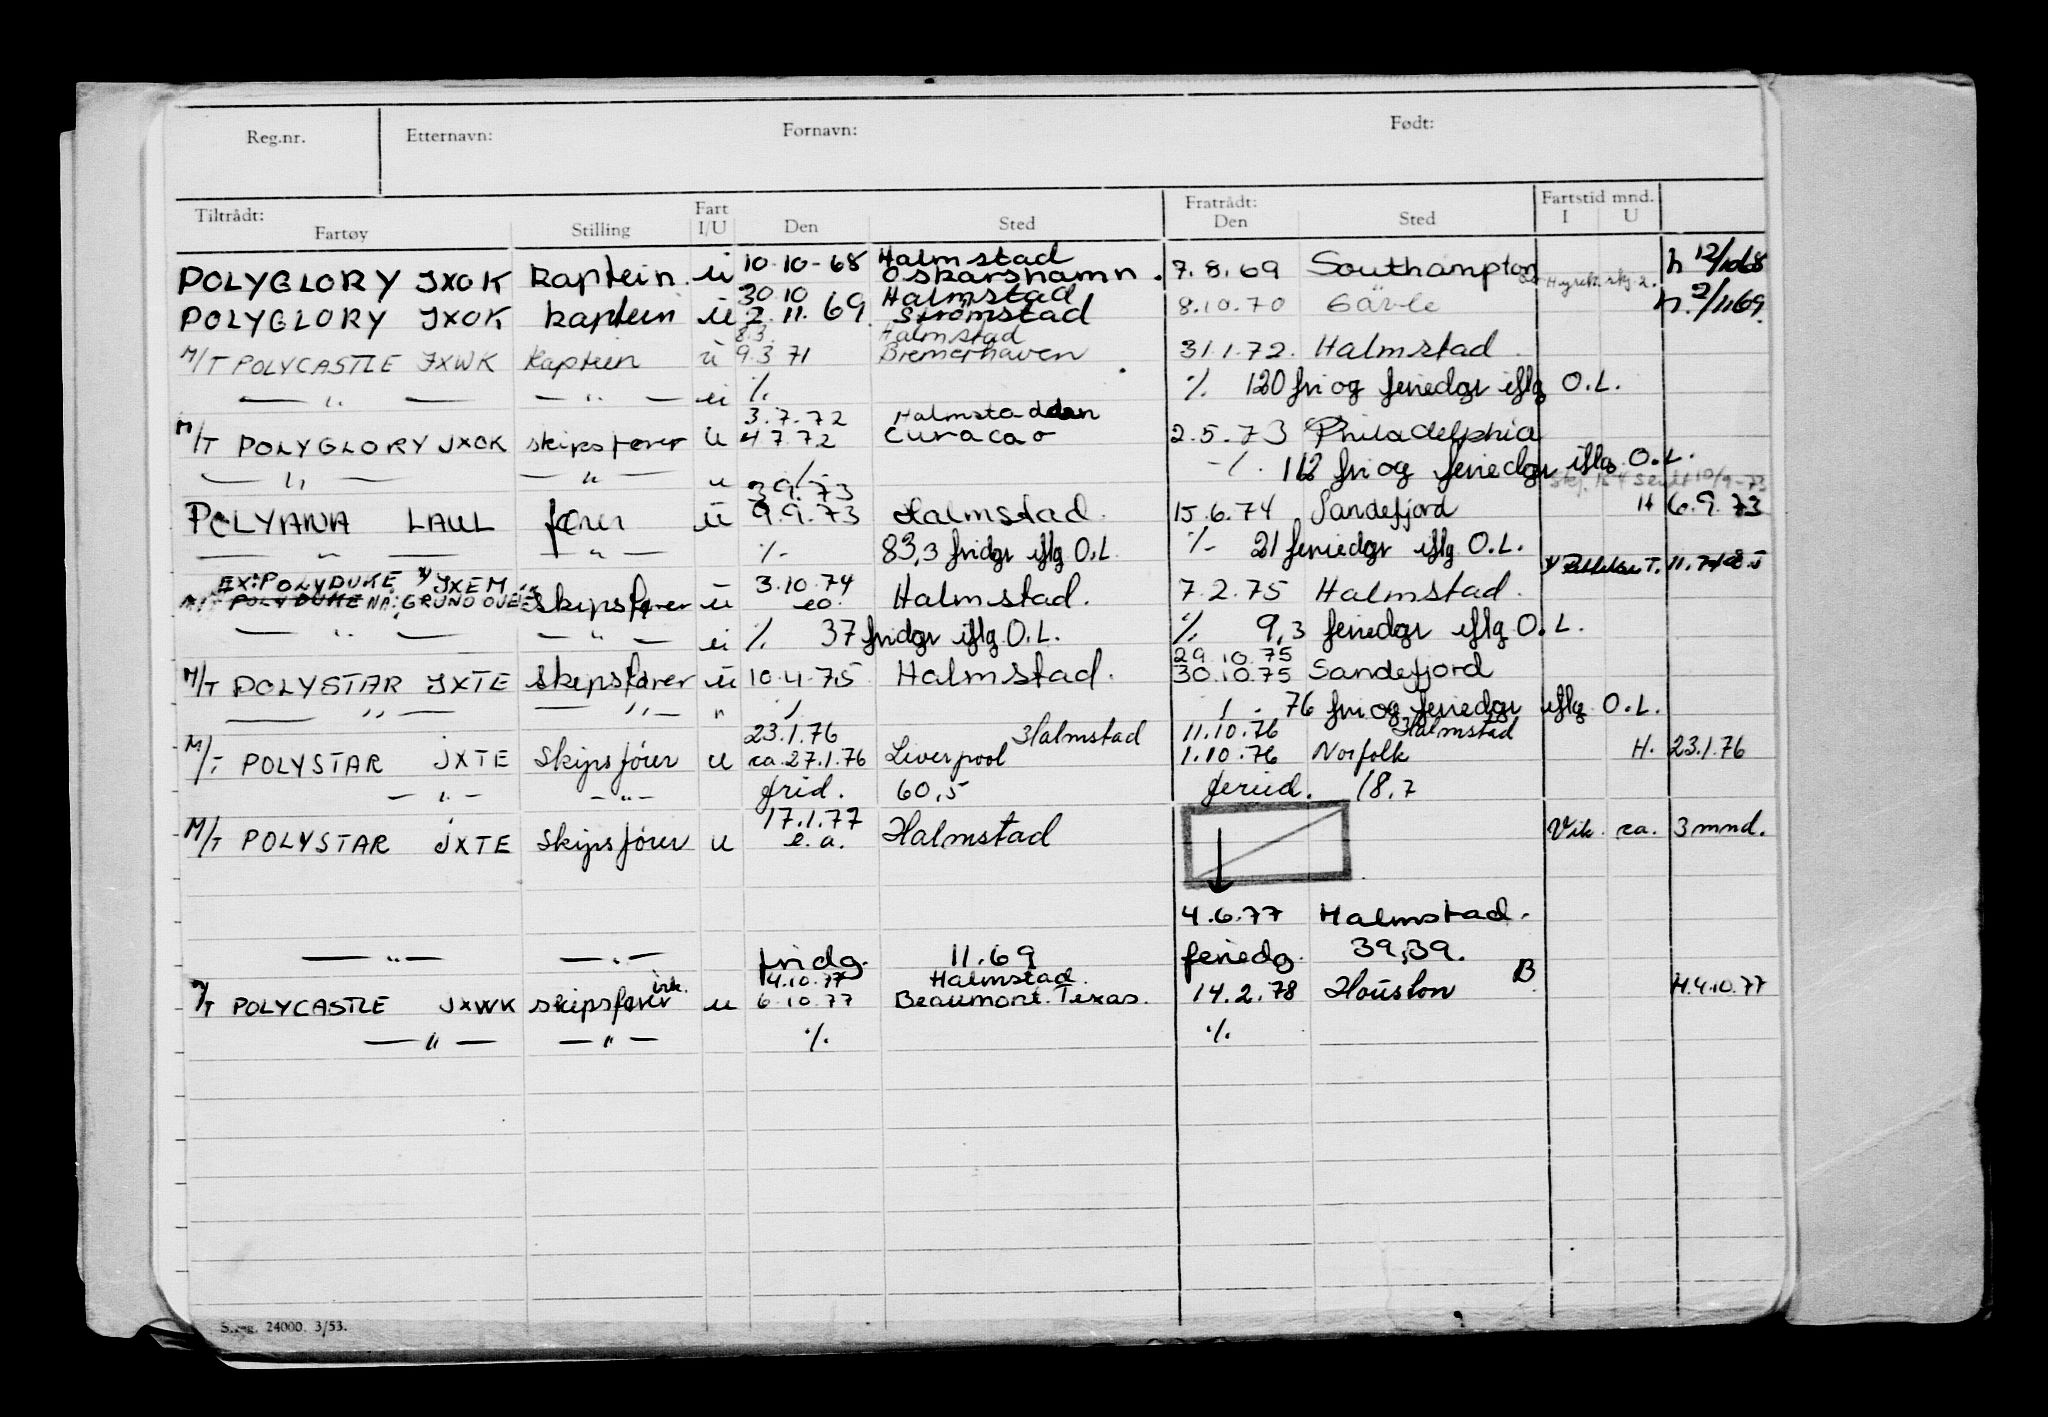 Reg.nr. Etternavn: Fornavn: Født:
Tiltrådt: Fart Fratrådt: Fartstid mnd.
Fartøy Stilling I/U Den Sted Den Sted I U
10.10-68 Halmstad
POLYGLORY JXOK kaptein ü Oskarshamn. 7.8.69 Southampton h 12/10 68
30.10 Halmstad
POLYGLORY JXOK kaptein ü 2.11.69 Strömstad 8.10.70 Gävle h. 2/11 69
8.3. Halmstad
M/T POLYCASTLE JXWK kaptein ü 9.3.71 Bremerhaven 31.1.72. Halmstad
— " — — " — ü ·/. ·/. 120 fri og feriedgr iflg O.L.
3.7.72 Halmstad
M/T POLYGLORY JXOK skipsfører ü 4.7.72 Curacao 2.5.73 Philadelphia
— " — — " — u ·/. -/. 112 fri og feriedgr iflg O.L.
3.9.73
POLYANA LAUL fører ü 9.9.73 Halmstad. 15.6.74 Sandefjord H 6.9.73
— " — — " — ·/- 83,3 fridgr iflg O.L ·/- 21 feriedgr iflg O.L.
EX: POLYDUKE JXEM 3.10.74
M/T POLYDUKE NÅ: skipsfører ü eo. Halmstad. 7.2.75 Halmstad.
— " — — " — ü ·/. 37 fridgr iflg O.L. ·/. 9,3 feriedgr iflg O.L.
29.10.75
M/T POLYSTAR JXTE skipsfører ü 10.4.75 Halmstad. 30.10.75 Sandefjord
— " — — " — " ·/. ·/. 76 fri og feriedgr iflg O.L.
23.1.76 Halmstad 11.10.76 Halmstad
M/T POLYSTAR JXTE Skipsfører u ca.27.1.76 Liverpool 1.10.76 Norfolk H. 23.1.76
— " — — " — frid. 60,5 feried. 18,7
17.1.77
M/T POLYSTAR JXTE Skipsfører u e.a. Halmstad Vik. ca. 3 mnd.
4.6.77 Halmstad.
— " — — " — fridg. 11.69 feriedg. 39,39.
vik. 4.10.77 Halmstad. B
M/T POLYCASTLE JXWK skipsfører u 6.10.77 Beaumont. Texas. 14.2.78 Houston H.4.10.77
— " — — " — ·/. ·/.
24000. 3/53.